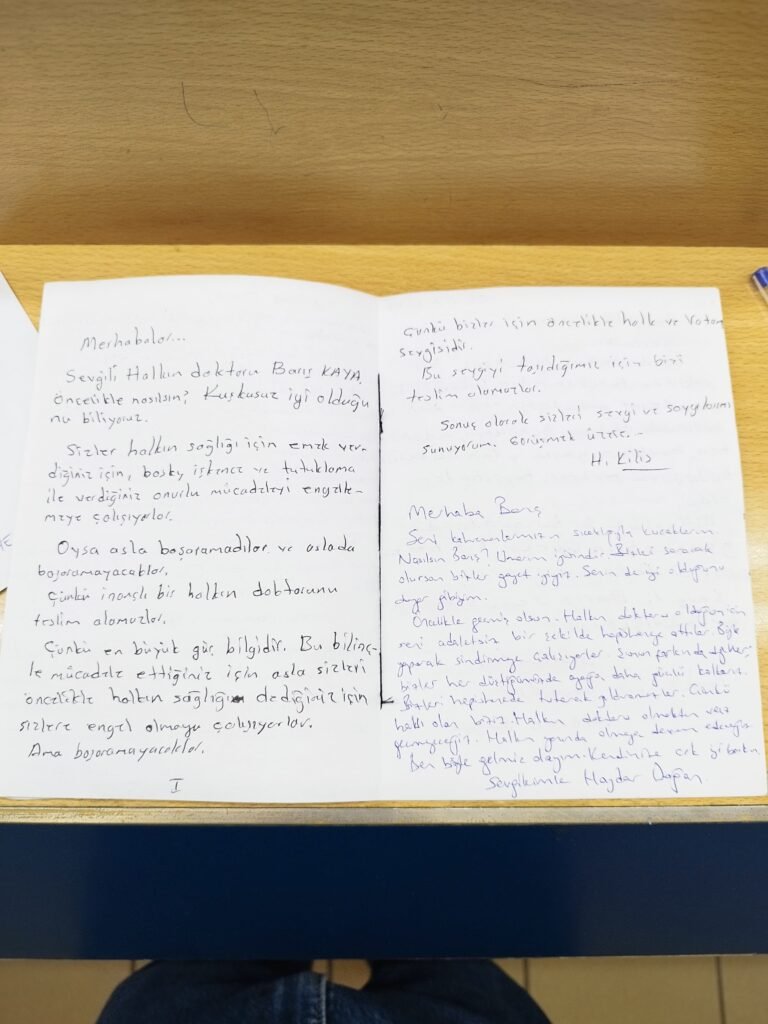 Merhabalar...
Sevgili Halkın doktoru Barış KAYA
öncelikle nasılsın? Kuşkusuz iyi olduğu
nu biliyoruz.
Sizler halkın sağlığı için emek ver-
diğiniz için, baskı, işkence ve tutuklama
ile verdiğiniz onurlu mücadeleyi engelle-
meye çalışıyorlar.
Oysa asla başaramadılar ve aslada
başaramayacaklar.
Çünkü inançlı bir halkın doktorunu
teslim alamazlar.
Çünkü en büyük güç bilgidir. Bu bilinç-
le mücadele ettiğiniz için asla sizleri
öncelikle halkın sağlığı dediğiniz için
sizlere engel olmaya çalışıyorlar.
Ama başaramayacaklar.
I
Çünkü bizler için öncelikle halk ve Vatan
sevgisidir.
Bu sevgiyi taşıdığımız için bizi
teslim alamazlar.
Sonuç olarak sizleri sevgi ve saygılarımı
sunuyorum. Görüşmek üzere...
H. Kilis
Merhaba Barış
Seni kahramanlarımızın sıcaklığıyla kucaklarım.
Nasılsın Barış? Umarım iyisindir. Bizleri soracak
olursan bizler gayet iyiyiz. Senin de iyi olduğunu
duyar gibiyim.
Öncelikle geçmiş olsun. Halkın doktoru olduğun için
seni adaletsiz bir şekilde hapishaneye attılar. Böyle
yaparak sindirmeye çalışıyorlar. Şunun farkında değiller,
bizler her düştüğümüzde ayağa daha güçlü kalkarız.
Bizleri hapishanede tutarak yıldıramazlar. Çünkü
haklı olan biziz. Halkın doktoru olmaktan vaz
geçmeyeceğiz. Halkın yanında olmaya devam edeceğiz.
Ben böyle gelmiş olayım. Kendinize çok iyi bakın.
Sevgilerimle Haydar Doğan.